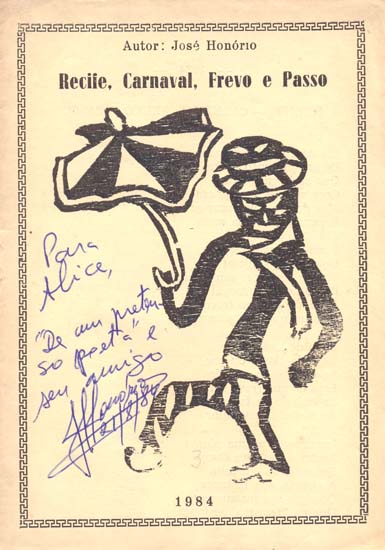 Autor: José Honório
Recife, Carnaval, Frevo e Passo
Para
Alice,
"De um preten-
so poeta" e
seu amigo
Honório
1984